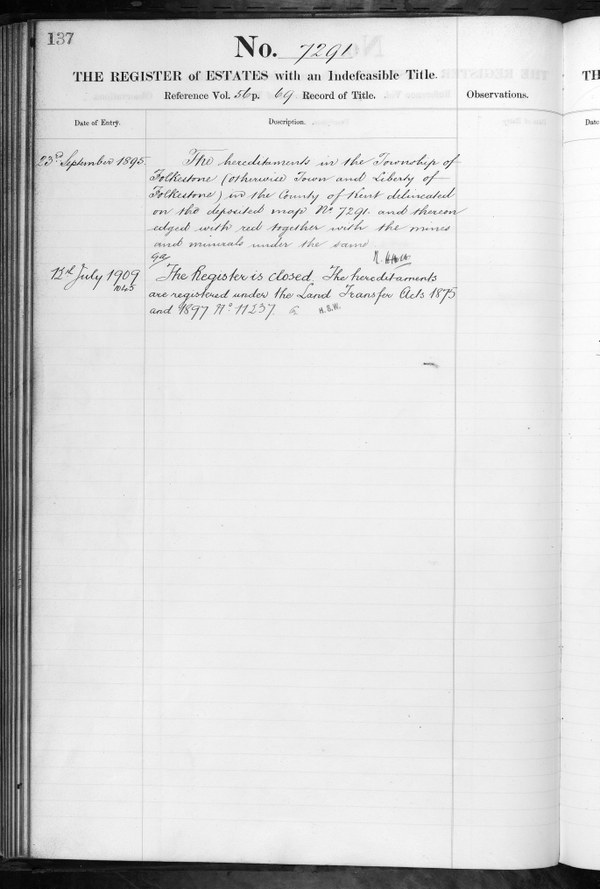 137
No. 7291
THE REGISTER of ESTATES with an Indefeasible Title.
Reference Vol. 56 p. 69 Record of Title.
Observations.
Date of Entry.
Description.
23rd September 1895
The hereditaments in the Township of
Folkestone (otherwise Town and Liberty of
Folkestone) in the County of Kent delineated
on the deposited map No 7291 and thereon
edged with red together with the mines
and minerals under the same
July 1909
The Register is closed. The hereditaments
are registered under the Land Transfer Acts 1875
and 1897 No 11237.
TH
Date